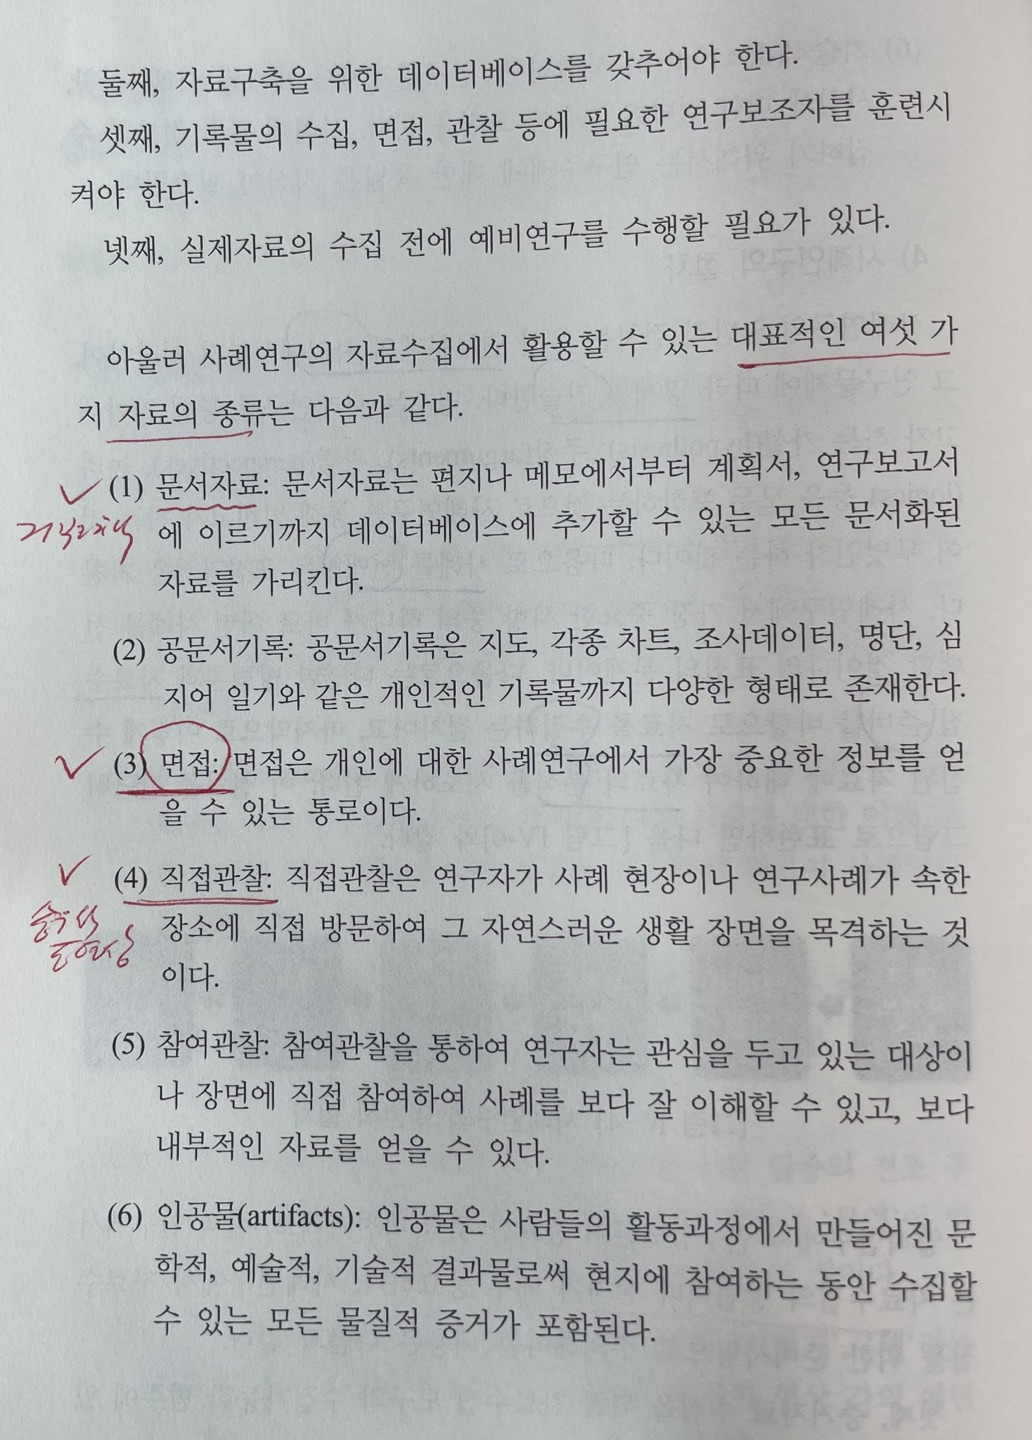 둘째, 자료구축을 위한 데이터베이스를 갖추어야 한다.
셋째, 기록물의 수집, 면접, 관찰 등에 필요한 연구보조자를 훈련시
켜야 한다.
넷째, 실제자료의 수집 전에 예비연구를 수행할 필요가 있다.
아울러 사례연구의 자료수집에서 활용할 수 있는 대표적인 여섯 가
지 자료의 종류는 다음과 같다.
(1) 문서자료: 문서자료는 편지나 메모에서부터 계획서, 연구보고서
에 이르기까지 데이터베이스에 추가할 수 있는 모든 문서화된
자료를 가리킨다.
(2) 공문서기록: 공문서기록은 지도, 각종 차트, 조사데이터, 명단, 심
지어 일기와 같은 개인적인 기록물까지 다양한 형태로 존재한다.
(3) 면접: 면접은 개인에 대한 사례연구에서 가장 중요한 정보를 얻
을 수 있는 통로이다.
(4) 직접관찰: 직접관찰은 연구자가 사례 현장이나 연구사례가 속한
장소에 직접 방문하여 그 자연스러운 생활 장면을 목격하는 것
이다.
(5) 참여관찰: 참여관찰을 통하여 연구자는 관심을 두고 있는 대상이
나 장면에 직접 참여하여 사례를 보다 잘 이해할 수 있고, 보다
내부적인 자료를 얻을 수 있다.
(6) 인공물(artifacts): 인공물은 사람들의 활동과정에서 만들어진 문
학적, 예술적, 기술적 결과물로써 현지에 참여하는 동안 수집할
수 있는 모든 물질적 증거가 포함된다.